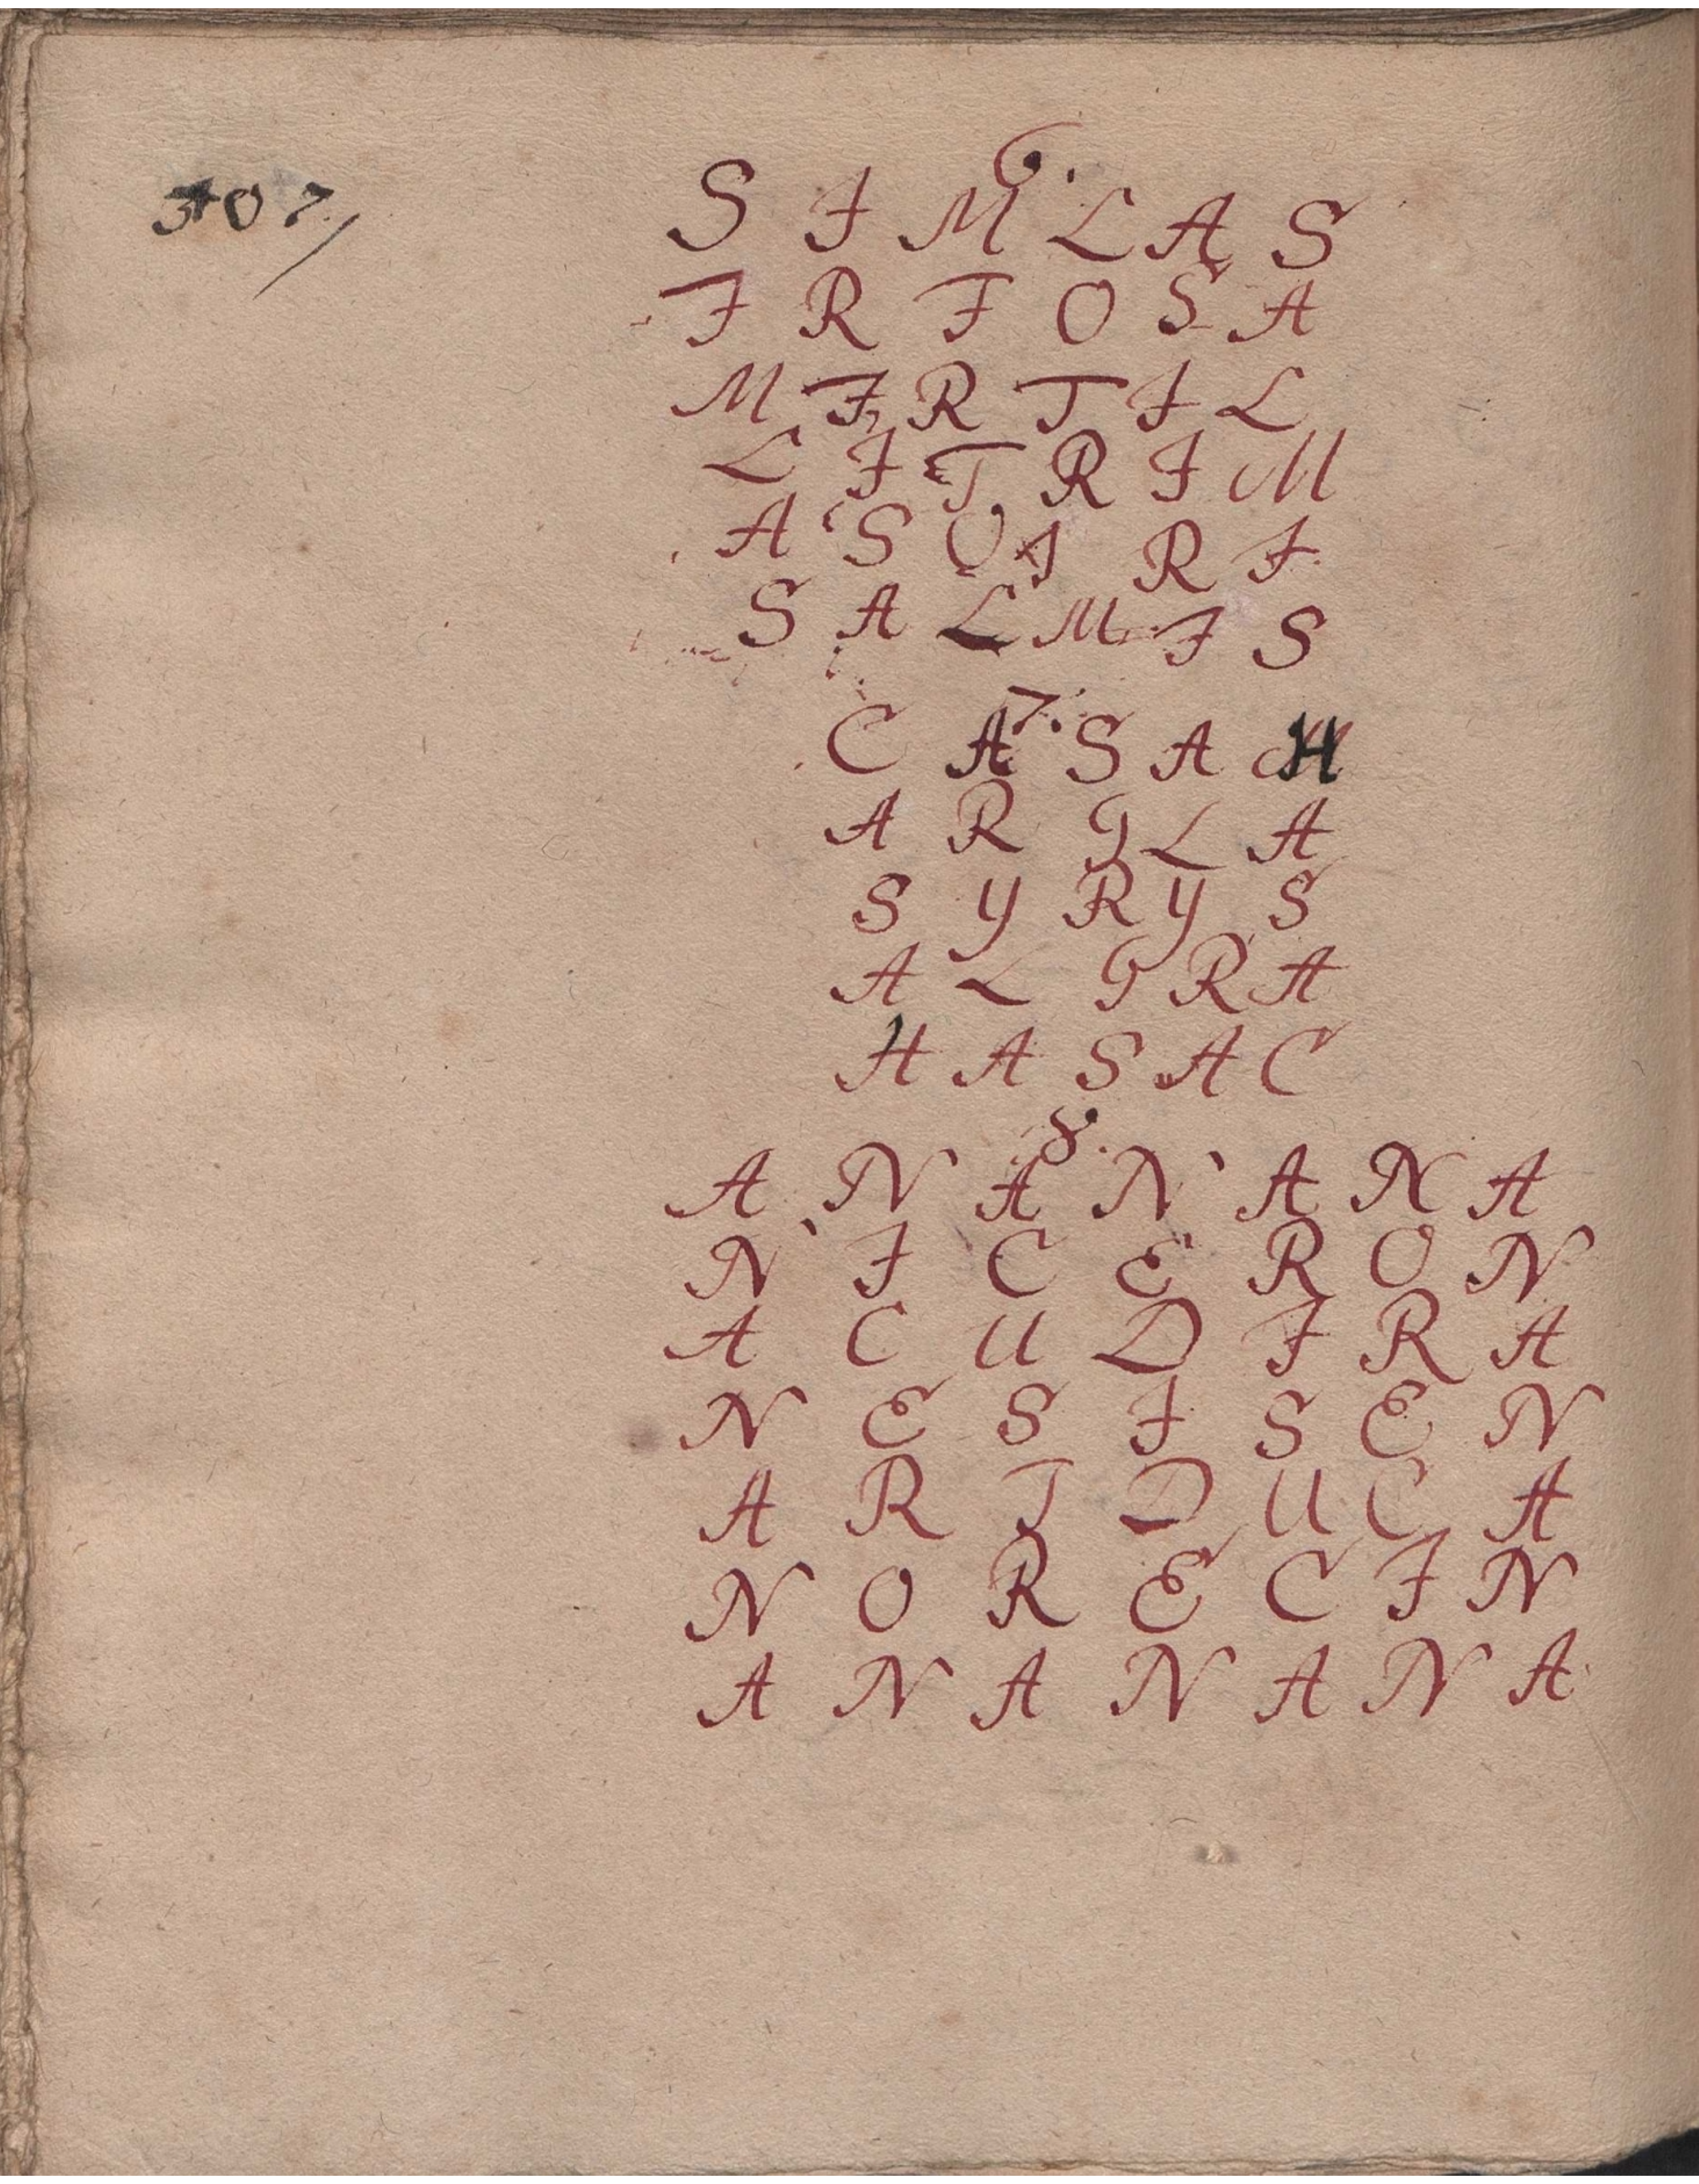 307/
6.
S I M L A S
I R I O S A
M I R T I L
L I T R I M
A S O I R I
S A L M I S
7.
C A S A H
A R G L A
S Y R Y S
A L G R A
H A S A C
8.
A N A N A N A
N I C E R O N
A C U D I R A
N E S I S E N
A R I D U C A
N O R E C I N
A N A N A N A